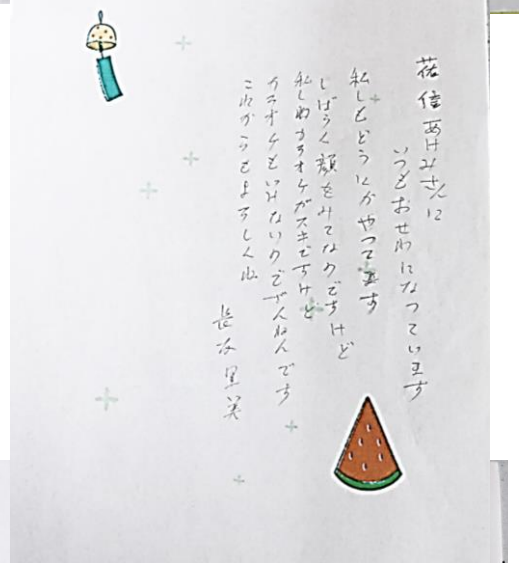 花信あけみさんに
いつもおせわになっています
私しもどうにかやってます
しばらく顔をみてなのですけど
私しわカラオケがスキですけど
カラオケもいみないのでざんねんです
これからもよろしくね
長友里美